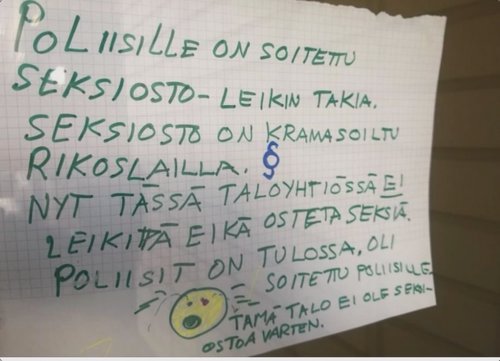 POLIISILLE ON SOITETTU
SEKSIOSTO-LEIKIN TAKIA.
SEKSIOSTO ON KRAMASOILTU
RIKOSLAILLA. §
NYT TÄSSÄ TALOYHTIÖSSÄ EI
LEIKITÄ EIKÄ OSTETA SEKSIÄ.
POLIISIT ON TULOSSA, OLI
SOITETTU POLIISILLE.
TÄMÄ TALO EI OLE SEKSI-
OSTOA VARTEN.